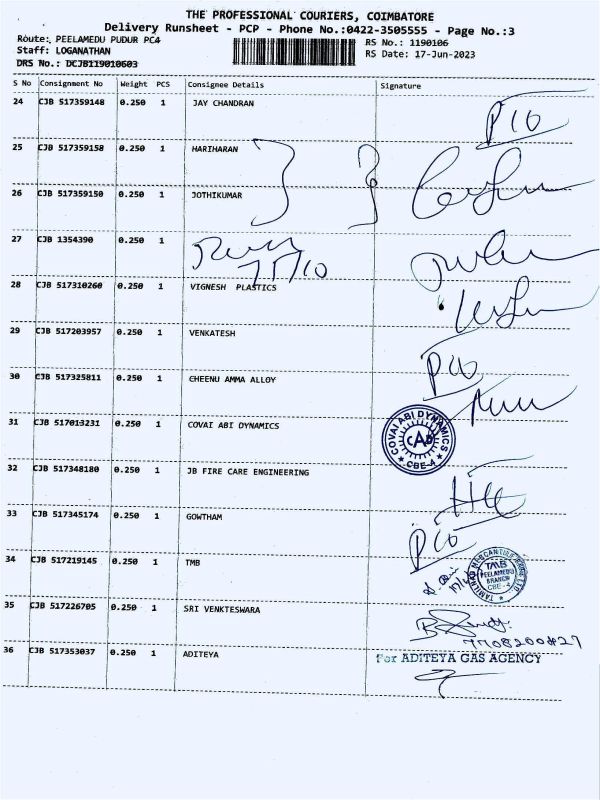 THE PROFESSIONAL COURIERS, COIMBATORE
Delivery Runsheet - PCP - Phone No.:0422-3505555 - Page No.:3
Route: PEELAMEDU PUDUR PC4 RS No.: 1190106
Staff: LOGANATHAN RS Date: 17-Jun-2023
DRS No.: DCJB119010603
S No Consignment No Weight PCS Consignee Details Signature
24 CJB 517359148 0.250 1 JAY CHANDRAN
25 CJB 517359158 0.250 1 HARIHARAN
26 CJB 517359150 0.250 1 JOTHIKUMAR
27 CJB 1354390 0.250 1
28 CJB 517310260 0.250 1 VIGNESH PLASTICS
29 CJB 517203957 0.250 1 VENKATESH
30 CJB 517325811 0.250 1 CHEENU AMMA ALLOY
31 CJB 517013231 0.250 1 COVAI ABI DYNAMICS
COVAI ABI DYNAMICS
CAD
CBE-4
32 CJB 517348180 0.250 1 JB FIRE CARE ENGINEERING
33 CJB 517345174 0.250 1 GOWTHAM
34 CJB 517219145 0.250 1 TMB
TAMILNAD MERCANTILE BANK LTD.
TMB
PEELAMEDU
BRANCH
CBE-4
35 CJB 517226705 0.250 1 SRI VENKTESWARA
36 CJB 517353037 0.250 1 ADITEYA
For ADITEYA GAS AGENCY